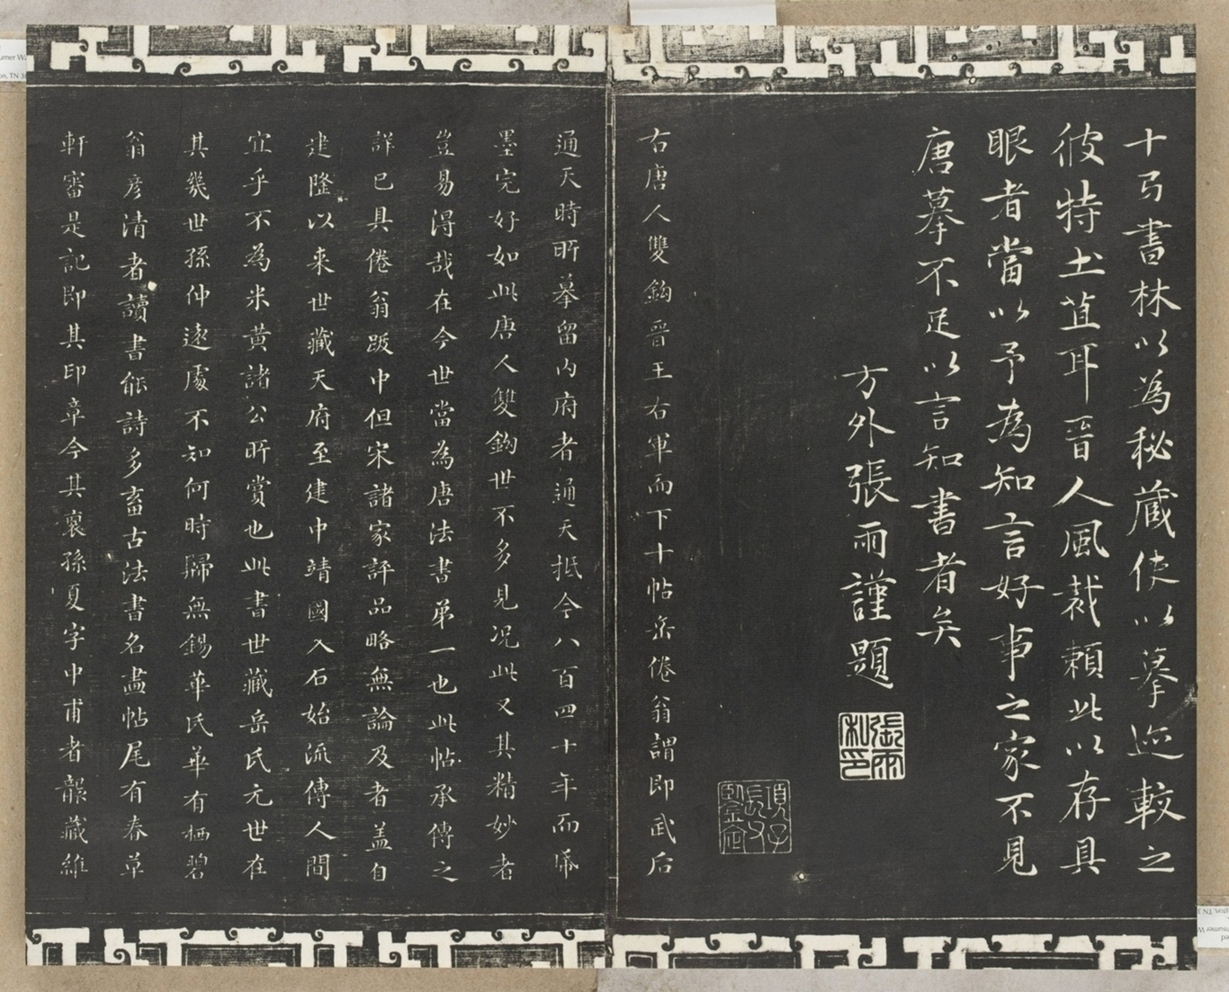 十弓書林以為秘藏使以摹迹較之
彼特土苴耳晉人風裁賴此以存具
眼者當以予為知言好事之家不見
唐摹不足以言知書者矣
方外張雨謹題
張雨私印
項子長父鑒定
右唐人雙鉤晉王右軍而下十帖岳倦翁謂即武后
通天時所摹留內府者通天抵今八百四十年而紙
墨完好如此唐人雙鉤世不多見况此又其精妙者
豈易得哉在今世當為唐法書弟一也此帖承傳之
詳已具倦翁跋中但宋諸家評品略無論及者盖自
建隆以来世藏天府至建中靖國入石始流傳人間
宜乎不為米黃諸公所賞也此書世藏岳氏元世在
其幾世孫仲遠處不知何時歸無錫華氏華有栖碧
翁彥清者讀書能詩多畜古法書名畫帖尾有春草
軒審是記即其印章今其裔孫夏字中甫者韞藏維